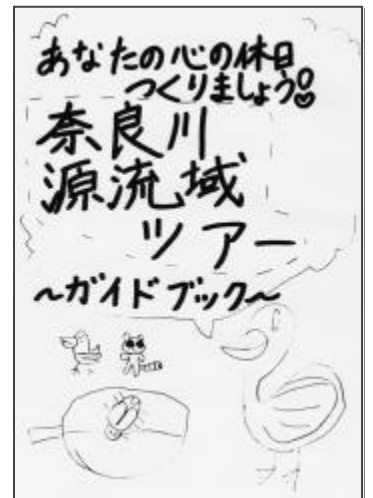 あなたの心の休日
つくりましょう!
奈良川
源流域
ツアー
～ガイドブック～